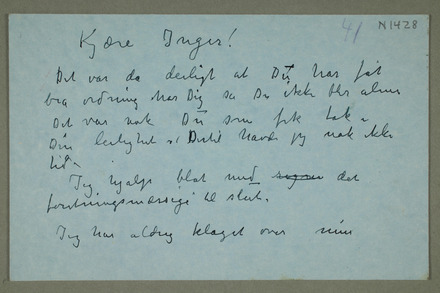 41 N1428
Kjære Inger!
Det var da deiligt at Du har fåt
bra ordning hos Dig så Du ikke blir alene
Det var nok Du som fik tak i
Din leilighet – Dertil havde jeg nok ikke
tid –
Jeg hjalp blot med det
forretningsmæssige til slut.
Jeg har aldrig klaget over min